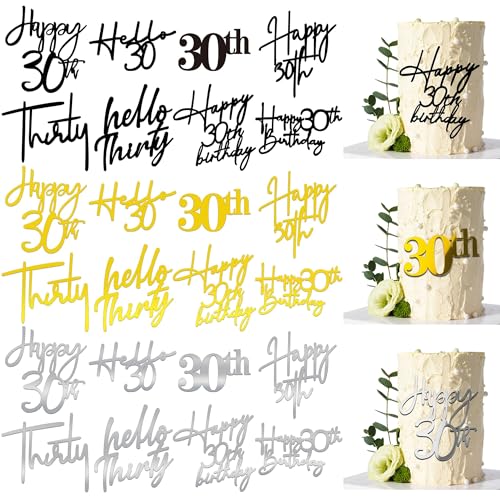 Happy
30th
Hello
30
30th
Happy
30th
Thirty
hello
Thirty
Happy
30th
birthday
Happy 30th
Birthday
Happy
30th
birthday
Happy
30th
Hello
30
30th
Happy
30th
Thirty
hello
Thirty
Happy
30th
birthday
Happy 30th
Birthday
30th
Happy
30th
Hello
30
30th
Happy
30th
Thirty
hello
Thirty
Happy
30th
birthday
Happy 30th
Birthday
Happy
30th